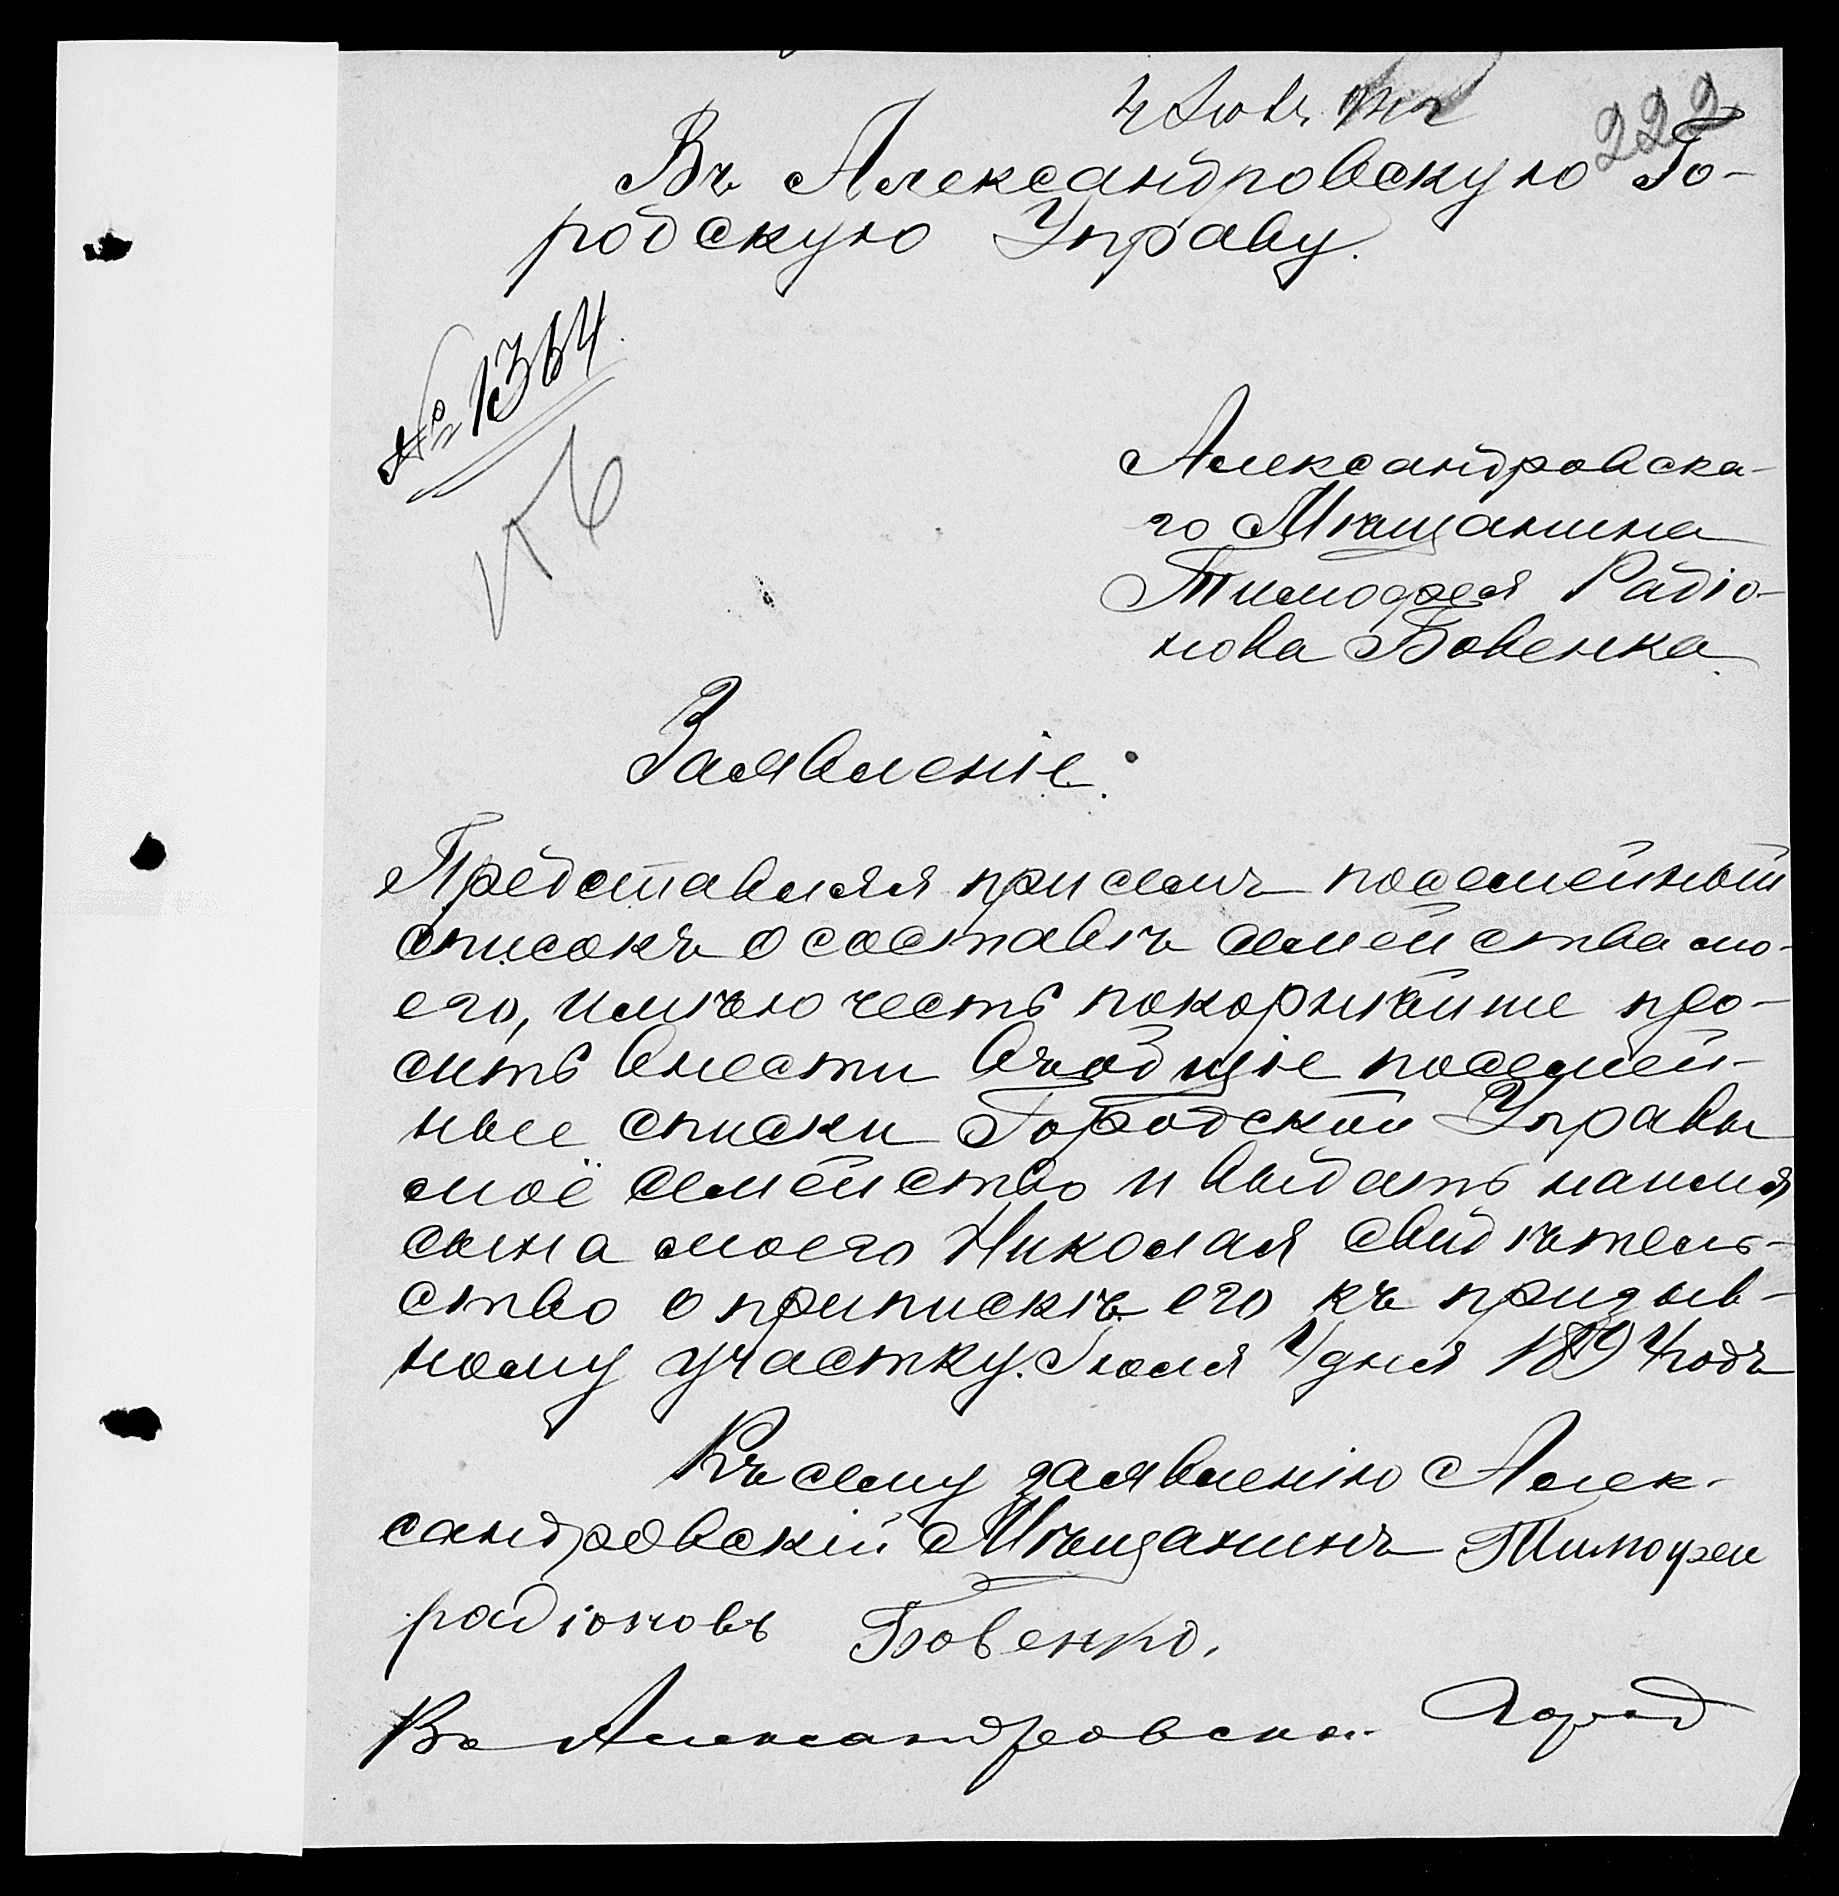 222
Въ Александровскую Го-
родскую Управу.
№ 1364
Александровска-
го Мѣщанина
Тимофея Радіо-
нова Бовенка
Заявленіе.
Представляя при семъ посемейный
списокъ о составѣ семейства мо-
его, имѣю честь покорнѣйше про-
сить внести въобщіе посемей-
ные списки Городской Управы
моё семейство и выдать наимя
сына моего Николая свидѣтель-
ство о припискѣ его къ призыв-
ному участку. Іюля 4 дня 1894 годъ
Къ сему заявленію Алек-
сандровскій Мѣщанинъ Тимофеи
радіоновъ Бовенко.
Во Александровскои Город